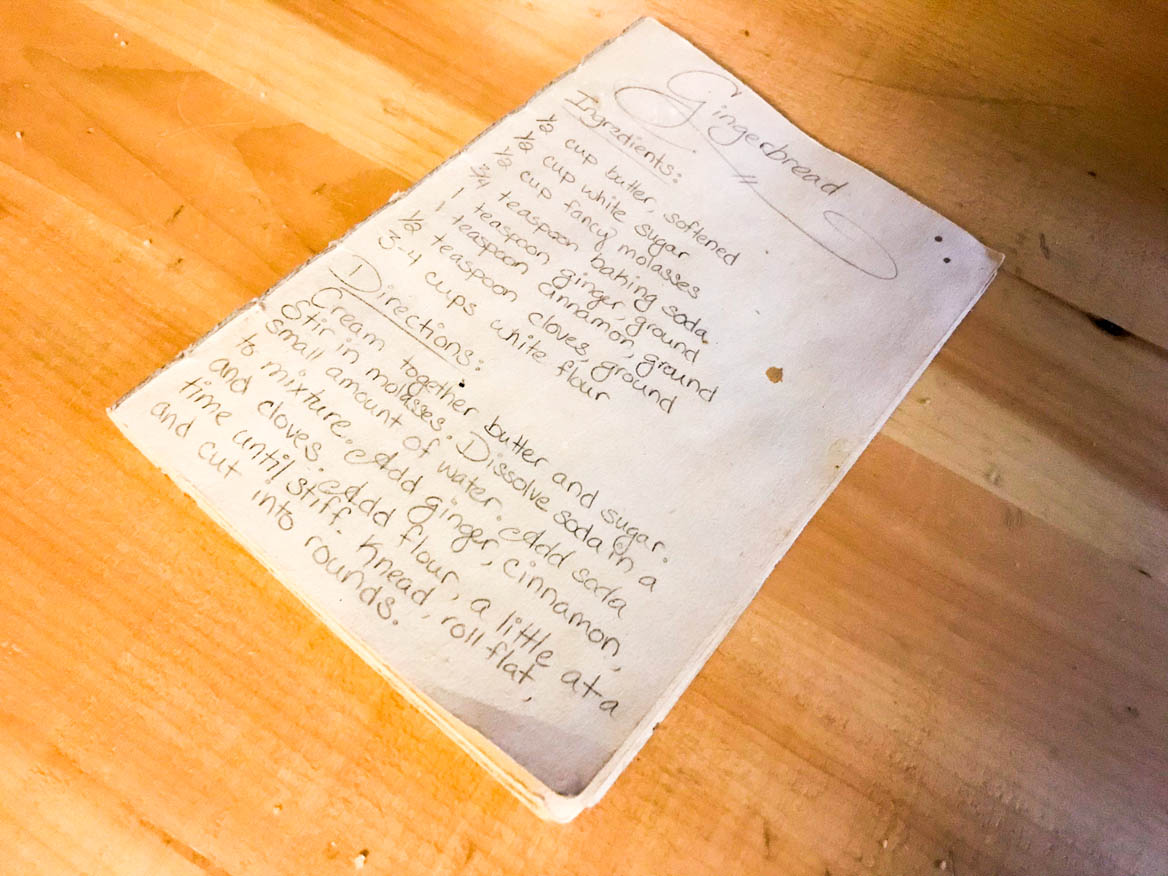 Gingerbread
Ingredients:
1/2 cup butter, softened
1/2 cup white sugar
1/2 cup fancy molasses
3/4 teaspoon baking soda
1 teaspoon ginger, ground
1 teaspoon cinnamon, ground
1/2 teaspoon cloves, ground
3-4 cups white flour
Directions:
Cream together butter and sugar.
Stir in molasses. Dissolve soda in a
small amount of water. Add soda
to mixture. Add ginger, cinnamon,
and cloves. Add flour, a little at a
time until stiff. Knead, roll flat,
and cut into rounds.